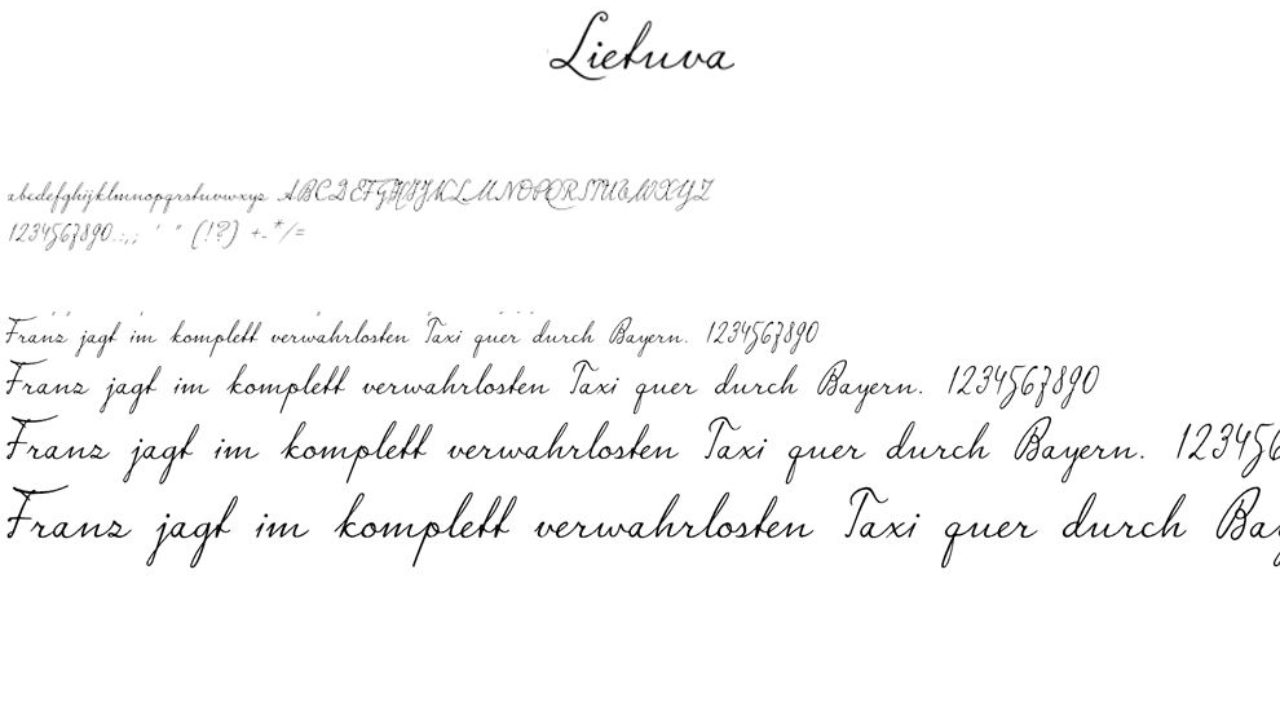 Lietuva
abcdefghijklmnopqrstuvwxyz ABCDEFGHIJKLMNOPQRSTUVWXYZ
1234567890.:,; ' " (!?) +-*/=
Franz jagt im komplett verwahrlosten Taxi quer durch Bayern. 1234567890
Franz jagt im komplett verwahrlosten Taxi quer durch Bayern. 1234567890
Franz jagt im komplett verwahrlosten Taxi quer durch Bayern. 123456
Franz jagt im komplett verwahrlosten Taxi quer durch Bay